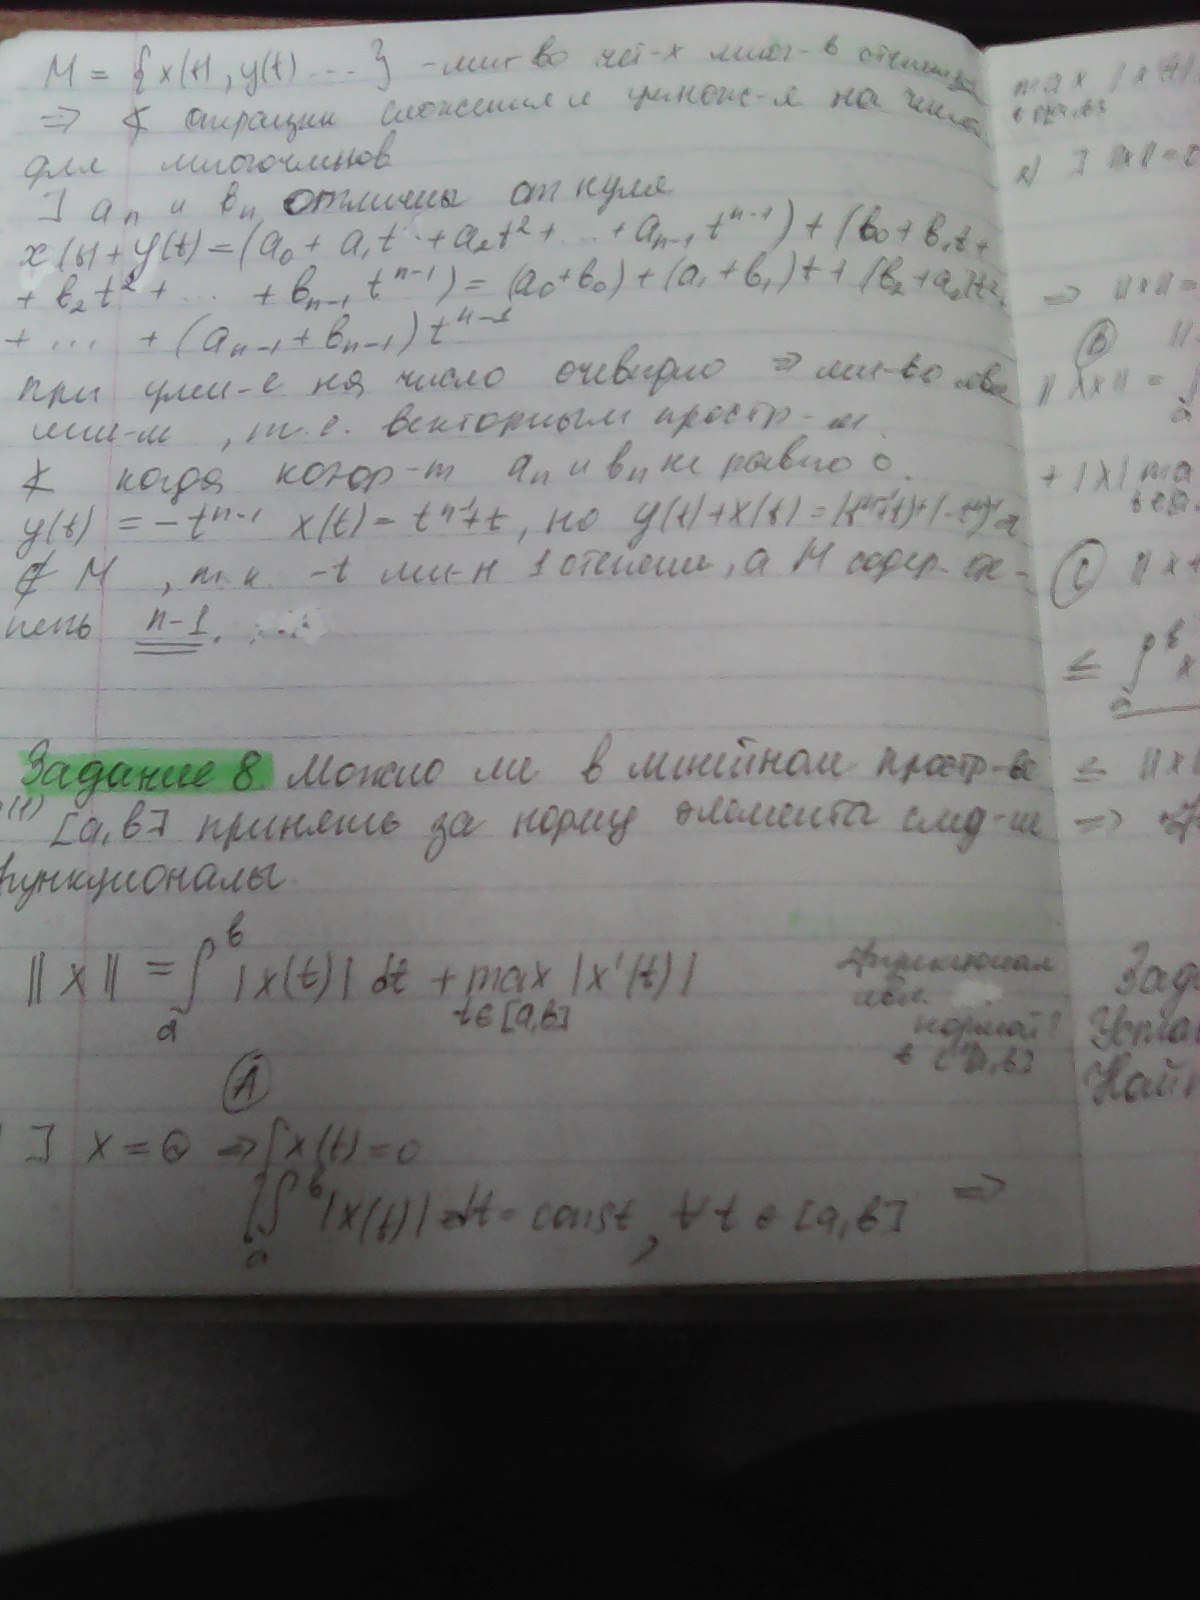 M = {x(t), y(t) ...} - мн-во чет-х мног-в степени
⇒ ∢ операции сложения и умнож-я на числа
для многочленов
] aₙ и вₙ отличны от нуля
x(t)+y(t)=(a₀ + a₁t + a₂t² + ... + aₙ₋₁ tⁿ⁻¹) + (в₀ + в₁t +
+ в₂t² + ... + вₙ₋₁ tⁿ⁻¹) = (a₀+в₀) + (a₁+в₁)t + (в₂+a₂)t²
+ ... + (aₙ₋₁+вₙ₋₁) tⁿ⁻¹
при умн-е на число очевидно ⇒ мн-во явл
лин-м, т.е. векторным простр-м.
∢ когда котор-т aₙ и вₙ не равно 0.
y(t) = -tⁿ⁻¹ x(t) = tⁿ⁻¹+t, но y(t)+x(t) =
∉ M, т.к. -t мн-н 1 степени, а M содер. сте-
пень n-1.
Задание 8 Можно ли в линейном простр-ве
[a,в] принять за норму элемента след-ие
функционалы
||x|| = ∫ₐᵇ |x(t)| dt + max |x'(t)|
t∈[a,в]
функционал
явл.
нормой?
в C'[a,в]
(A)
] x = Θ ⇒ [x(t)=0
[∫ₐᵇ |x(t)| dt = const, ∀t∈[a,в] ⇒
max |x(t)|
t∈[a,в]
] ||x|| =
⇒ ||x|| =
(B)
||λx|| = ∫
a
+ |λ| ma
(C) ||x+
≤ ∫ᵇ x
a
≤ ||x||
⇒
Зада
Уста
Най